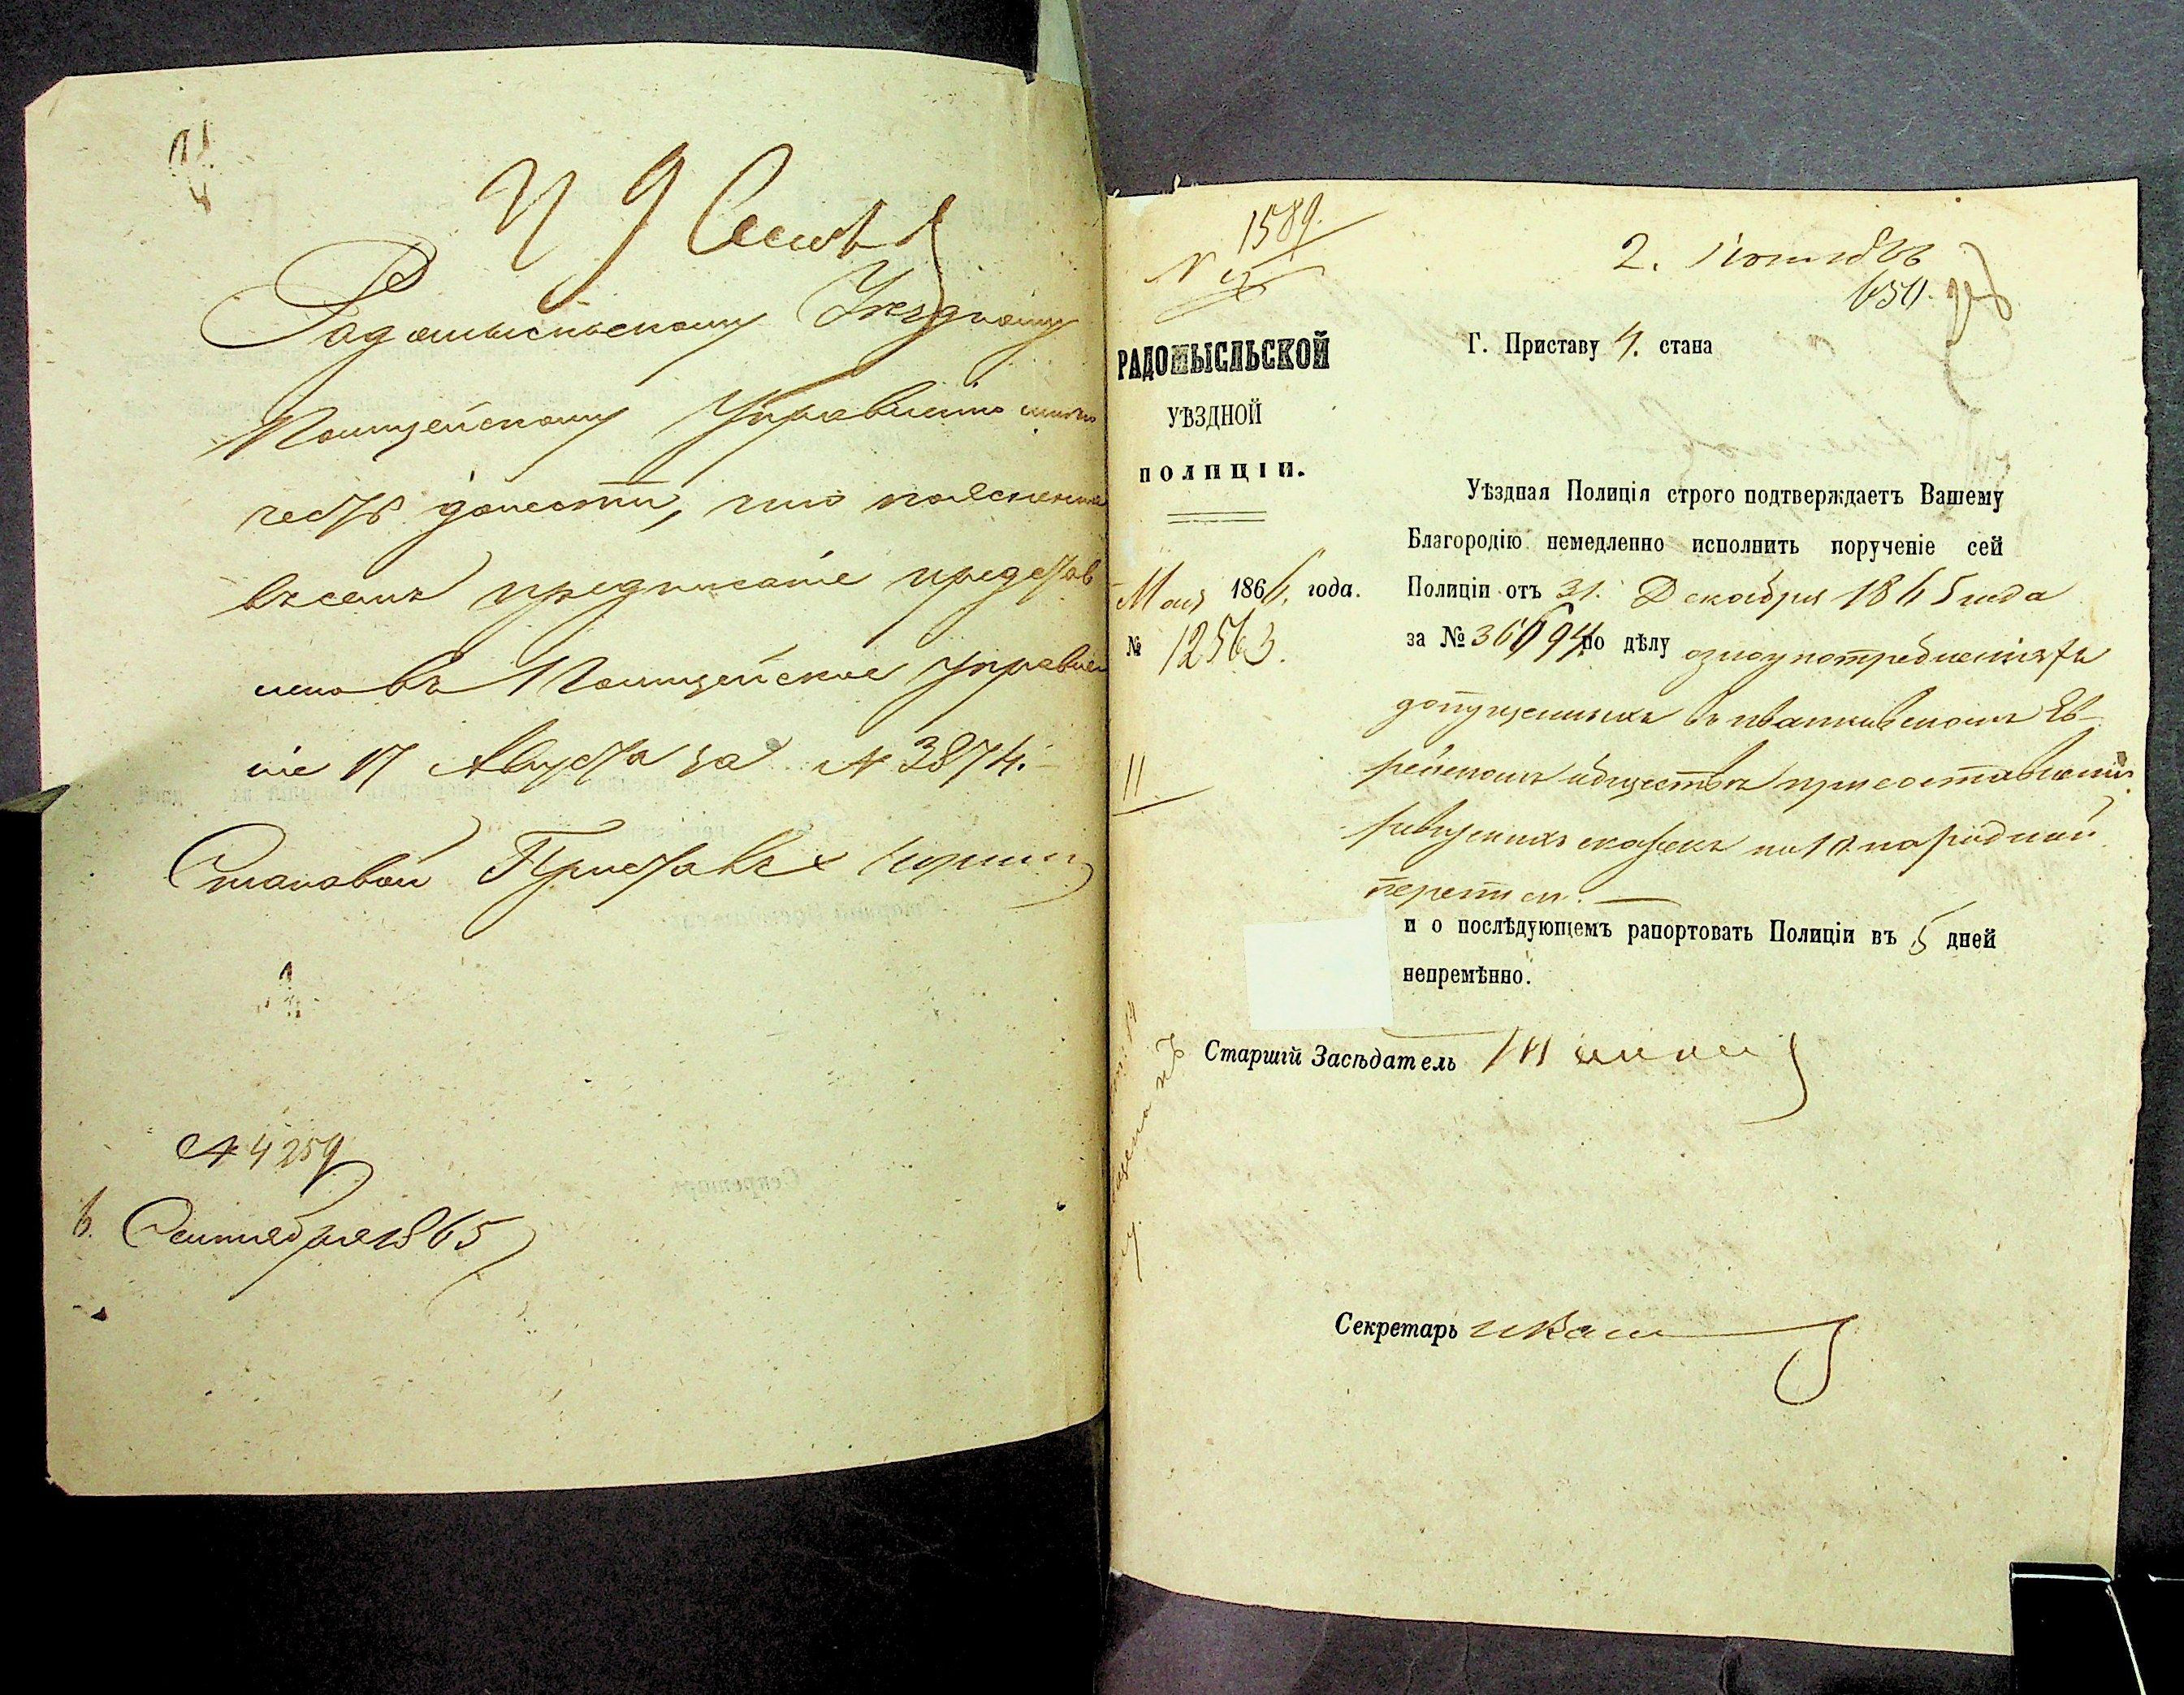 Радомысльскому Уездному
Полицейскому Управлению имею
честь донести, что пояснение
въ семъ предписаніе представ
лено въ Полицейское Управле
ніе 17 Августа за № 3874.
Становой Приставъ
№ 4259
6. Сентября 1865
№ 1589.
2.
650.
РАДОМЫСЛЬСКОЙ
УѢЗДНОЙ
ПОЛИЦІИ.
Мая 1866 года.
№ 12563.
11
Г. Приставу 4. стана
Уѣздная Полиція строго подтверждаетъ Вашему
Благородію немедленно исполнить порученіе сей
Полиціи отъ 31. Декабря 1865 года
за № 36694 по дѣлу о злоупотребленіяхъ
допущенныхъ въ Иванковскомъ Ев-
рейскомъ обществѣ при составленіи
ревизскихъ сказокъ по 10 народной
переписи. —
и о послѣдующемъ рапортовать Полиціи въ 5 дней
непремѣнно.
Старшій Засѣдатель
Секретарь